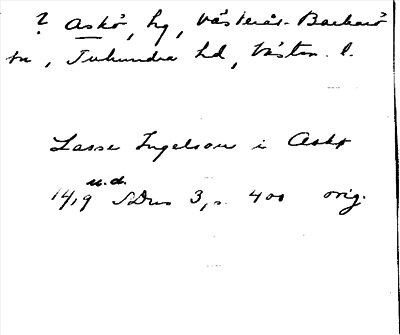 ? Askö, hg, Västerås-Barkarö
sn, Tuhundra hd, Västm. l.
Lasse Ingelsson i Askø
u.d.
1419 SDns 3, s. 400 orig.